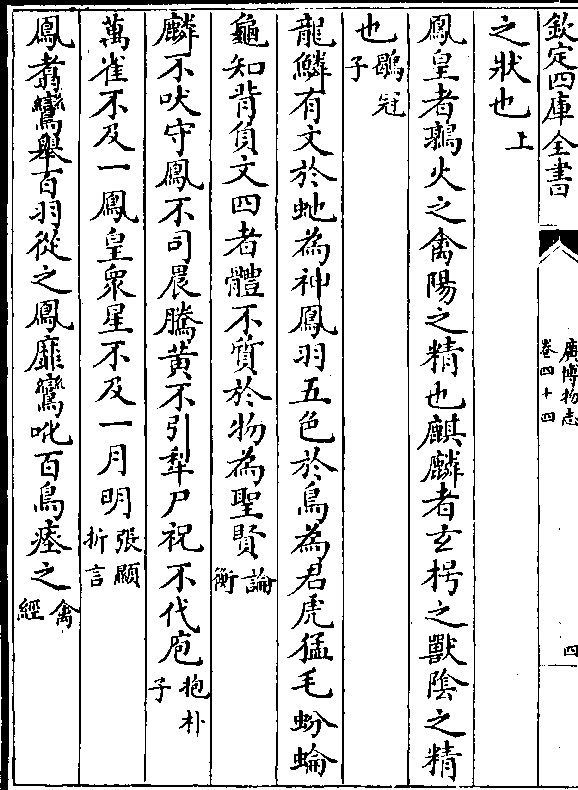 欽定四庫全書
廣博物志
卷四十四
四
之狀也上
鳳皇者鶉火之禽陽之精也麒麟者玄枵之獸陰之精
也鶡冠子
龍鱗有文於虵為神鳳羽五色於鳥為君虎猛毛蚡蜦
龜知背負文四者體不質於物為聖賢論衡
麟不吠守鳳不司晨騰黃不引犁尸祝不代庖抱朴子
萬雀不及一鳳皇衆星不及一月明張顯折言
鳳翥鸞舉百羽從之鳳靡鸞吪百鳥瘞之禽經